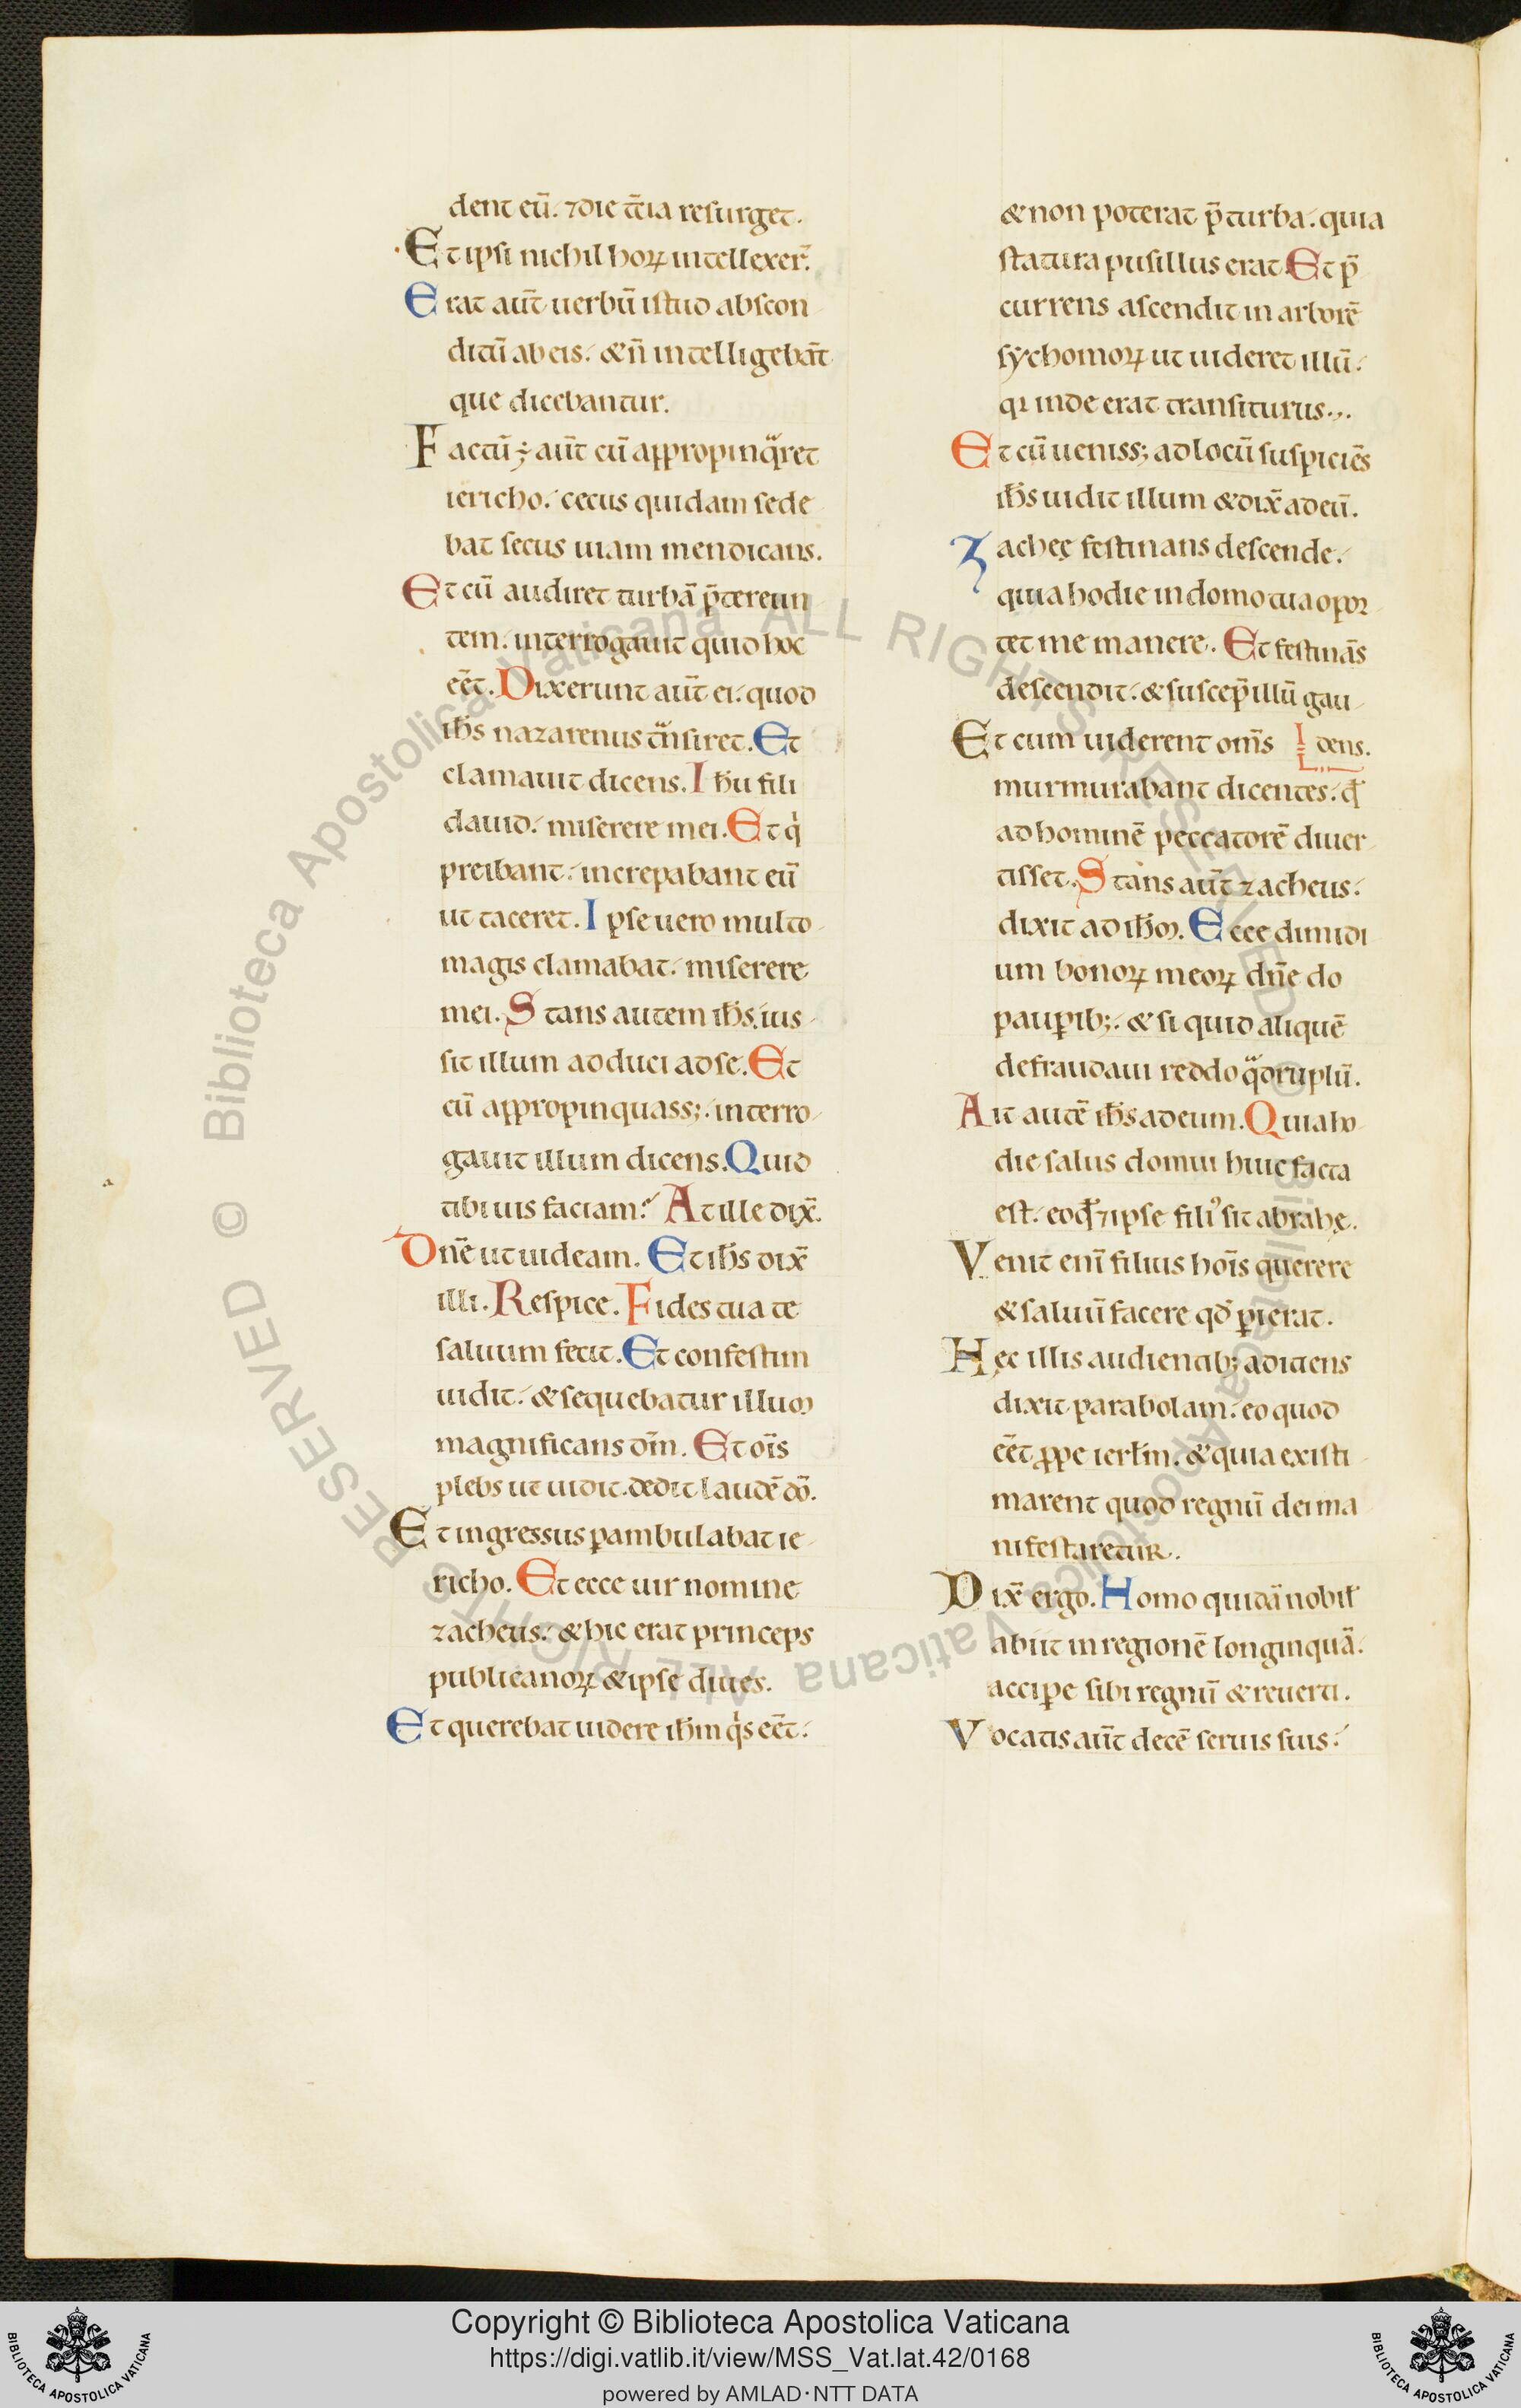 dent eū. ⁊ die t̄cia resurget.
Et ipsi nichil hoꝝ intellexer̄.
Erat aūt uerbū istud abscon
ditū ab eis. & n̄ intelligebāt
que dicebantur.
Factū ÷ aūt cū appropinqᵃret
iericho. cecus quidam sede
bat secus uiam mendicans.
Et cū audiret turbā p̄tereun
tem. interrogauit quid hoc
eēt. Dixerunt aūt ei. quod
ih̄s nazarenus tᵃnsiret. Et
clamauit dicens. Ih̄u fili
dauid. miserere mei. Et qⁱ
preibant. increpabant eū
ut taceret. Ipse uero multo
magis clamabat. miserere
mei. Stans autem ih̄s. ius
sit illum adduci ad se. Et
cū appropinquass&. interro
gauit illum dicens. Quid
tibi uis faciam? At ille dix̄.
Dn̄e ut uideam. Et ih̄s dix̄
illi. Respice. Fides tua te
saluum fecit. Et confestim
uidit. & sequebatur illum
magnificans dm̄. Et oīs
plebs ut uidit. dedit laudē dō.
Et ingressus ꝑambulabat ie
richo. Et ecce uir nomine
zacheus. & hic erat princeps
publicanoꝝ & ipse diues.
Et querebat uidere ih̄m qⁱs eēt.
& non poterat p̄ turba. quia
statura pusillus erat. Et p̄
currens ascendit in arborē
sychomoꝝ ut uideret illū.
qꝛ inde erat transiturus.
Et cū ueniss; ad locū suspiciēs
ih̄s uidit illum & dix̄ ad eū.
Zachee festinans descende.
quia hodie in domo tua opoꝛ
tet me manere. Et festinās
descendit. & suscep̄ illū gau
Et cum uiderent om̄s dens.
murmurabant dicentes. qđ
ad hominē peccatorē diuer
tisset. Stans aūt zacheus.
dixit ad ih̄m. Ecce dimidi
um bonoꝝ meoꝝ dn̄e do
pauꝑib;. & si quid aliquē
defraudaui reddo qᵃdruplū.
Ait autē ih̄s ad eum. Quia ho
die salus domui huic facta
est. eo qđ ⁊ ipse filiꝰ sit abrahę.
Venit enī filius hoīs querere
& saluū facere qđ ꝑierat.
Hęc illis audientib; adiciens
dixit parabolam. eo quod
eēt ꝓpe ierłm. & quia existi
marent quod regnū dei ma
nifestaretur.
Dix̄ ergo. Homo quidā nobił
abiit in regionē longinquā.
acciꝑe sibi regnū & reuerti.
Vocatis aūt decē seruis suis.
© Biblioteca Apostolica Vaticana ALL RIGHTS RESERVED © Biblioteca Apostolica Vaticana ALL RIGHTS RESERVED
Copyright © Biblioteca Apostolica Vaticana
https://digi.vatlib.it/view/MSS_Vat.lat.42/0168
powered by AMLAD·NTT DATA
BIBLIOTECA APOSTOLICA VATICANA
BIBLIOTECA APOSTOLICA VATICANA